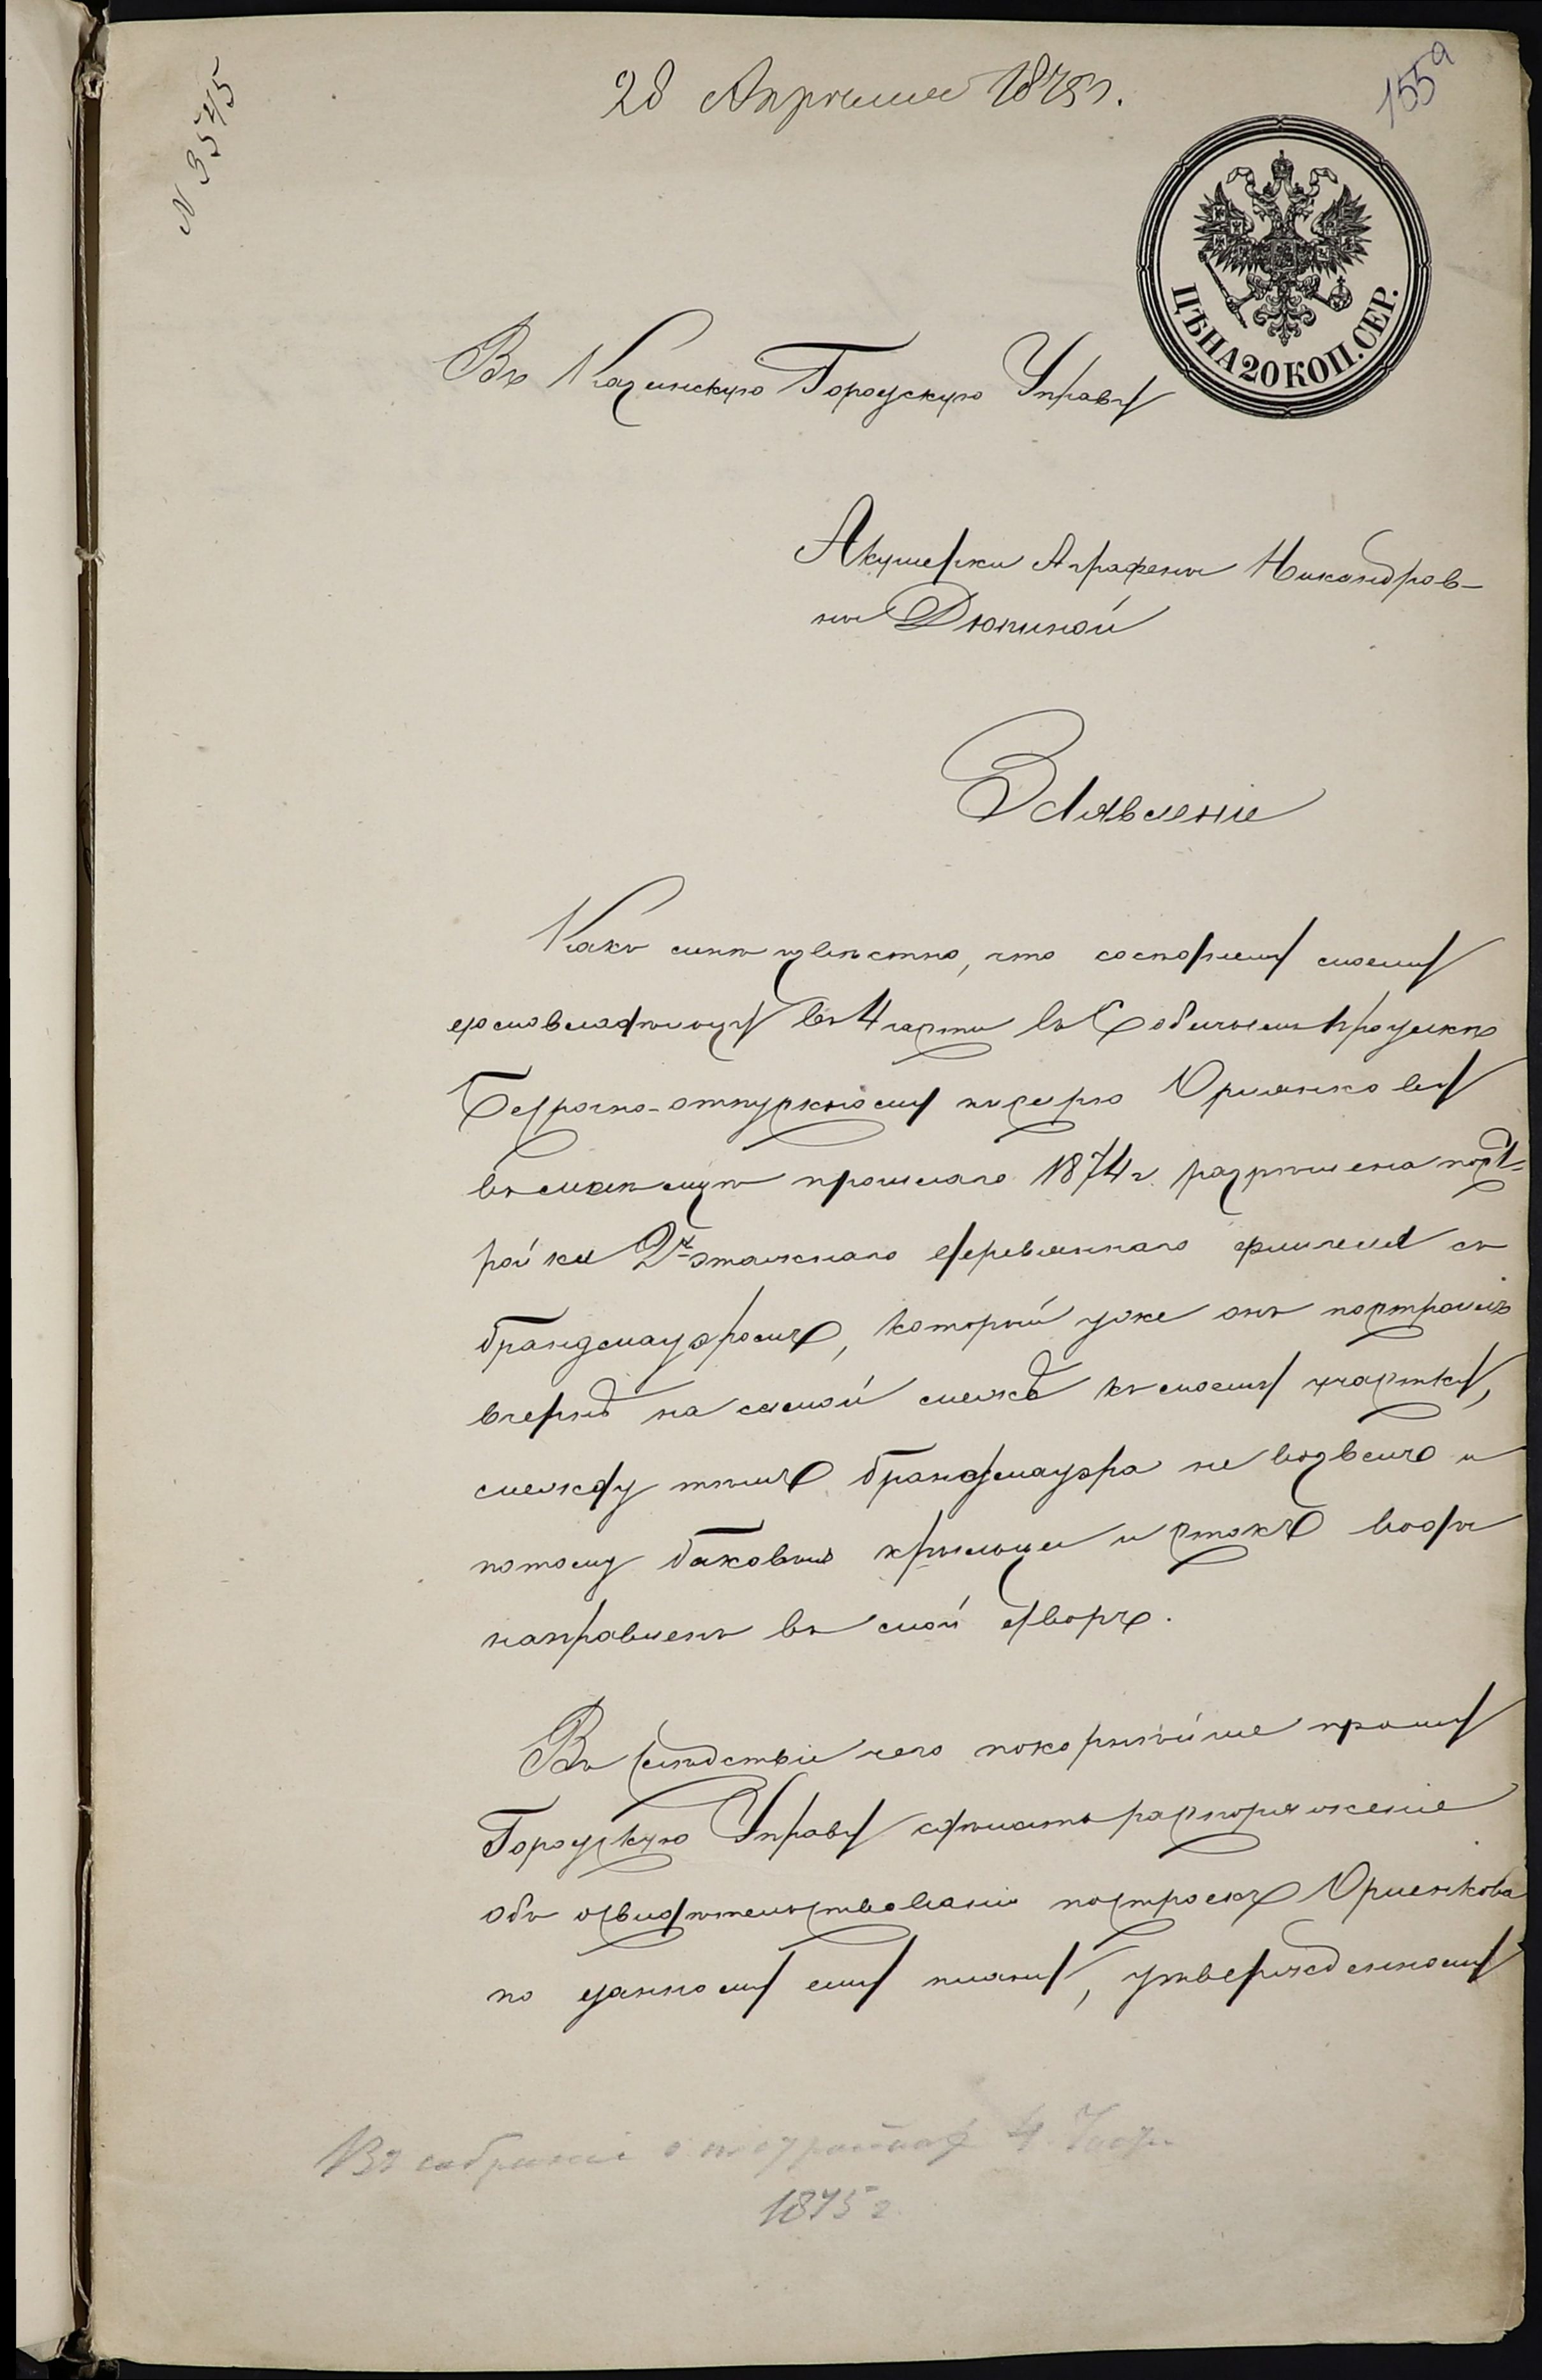 N 3545
28 Апрѣля 1875 г.
155а
ЦѢНА 20 КОП. СЕР.
Въ Казанскую Городскую Управу
Акушерки Аграфены Никандров-
ны Дюпиной
Заявленіе
Какъ мнѣ извѣстно, что соспорному моему
домовладѣльцу въ 4 части въ Собачьемъ проулкѣ
Безсрочно-отпускному писарю Орленкову
въ маѣ мцѣ прошлаго 1874 г. разрѣшена пост-
ройка 2х этажнаго деревяннаго флигеля съ
брандмауэромъ, который уже онъ построилъ
вчернѣ на самой межѣ къ моему участку,
между тѣмъ брандмауэра не возвелъ и
потому баковыя крыльцы и стокъ воды
направленъ въ мой дворъ.
Въ слѣдствіи чего покорнѣйше прошу
Городскую Управу сдѣлать распоряженіе
объ освидѣтельствованіи построекъ Орленкова
по данному ему плану, утвержденному
Въ собраніе о постройкахъ 4 Части
1875 г.